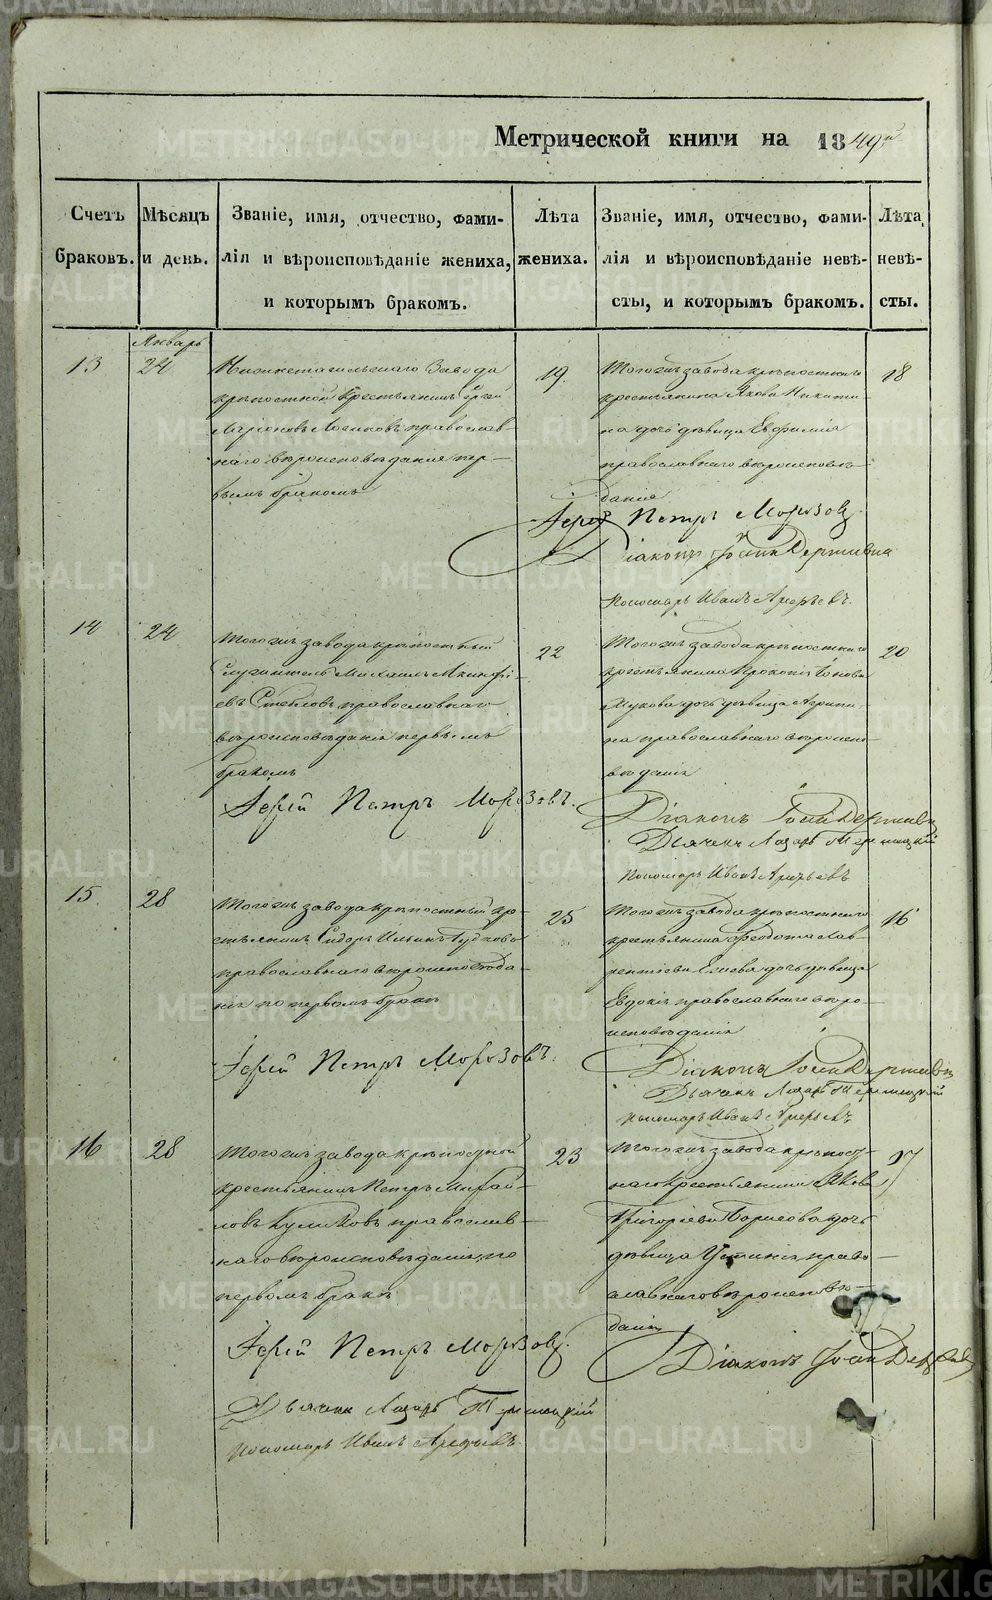 Метрической книги на 1849й
Счетъ браковъ.
Мѣсяцъ и день.
Званіе, имя, отчество, фами-
лія и вѣроисповѣданіе жениха,
и которымъ бракомъ.
Лѣта жениха.
Званіе, имя, отчество, фами-
лія и вѣроисповѣданіе невѣ-
сты, и которымъ бракомъ.
Лѣта невѣ-
сты.
Январь
13
24
Нижнетагильскаго Завода
крѣпостной Крестьянинъ Сергей
православ-
наго вѣроисповѣданія пер-
вымъ бракомъ
19
Тогожъ завода крѣпостнаго
крестьянина Якова Никити-
на дочь дѣвица Евфимія
православнаго вѣроисповѣ-
данія
18
Іерей Петръ Морозовъ.
Діаконъ Іоаннъ
Пономарь Иванъ
14
24
Тогожъ завода крѣпостный
Служитель Михаилъ Акинфі-
евъ православнаго
вѣроисповѣданія первымъ
бракомъ
22
Тогожъ завода крѣпостнаго
крестьянина Прокопія
Жукова дочь дѣвица Агрипи-
на православнаго вѣроиспо-
вѣданія
20
Іерей Петръ Морозовъ.
Діаконъ Іоаннъ
Дьячекъ Лазарь
Пономарь Иванъ
15
28
Тогожъ завода крѣпостный кре-
стьянинъ Сидоръ Ильинъ
православнаго вѣроисповѣда-
нія по первомъ бракѣ
25
Тогожъ завода крѣпостнаго
крестьянина Феодота Лав-
рентіева дочь дѣвица
Евдокія православнаго вѣро-
исповѣданія
16
Іерей Петръ Морозовъ.
Діаконъ Іоаннъ
Дьячекъ Лазарь
Пономарь Иванъ
16
28
Тогожъ завода крѣпостной
крестьянинъ Петръ Михай-
ловъ Куликовъ православ-
наго вѣроисповѣданія по
первомъ бракѣ
23
Тогожъ завода крѣпост-
наго Крестьянина Якова
Григоріева Борисова дочь
дѣвица Устинія право-
славнаго вѣроисповѣ-
данія
17
Іерей Петръ Морозовъ.
Діаконъ Іоаннъ
Дьячекъ Лазарь
Пономарь Иванъ
METRIKI.GASO-URAL.RU